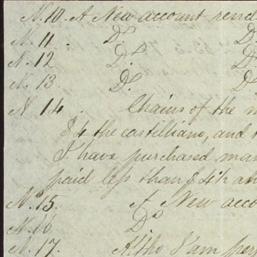 N. 10. A New account rend
N. 11. Do. D
N. 12 Do. D
N. 13 Do. D
N. 14. Chains of the
$4 the castilliano, and
I have purchased man
paid less than $4½ an
N. 15. A New acco
N. 16. Do
N. 17. Altho' I am per